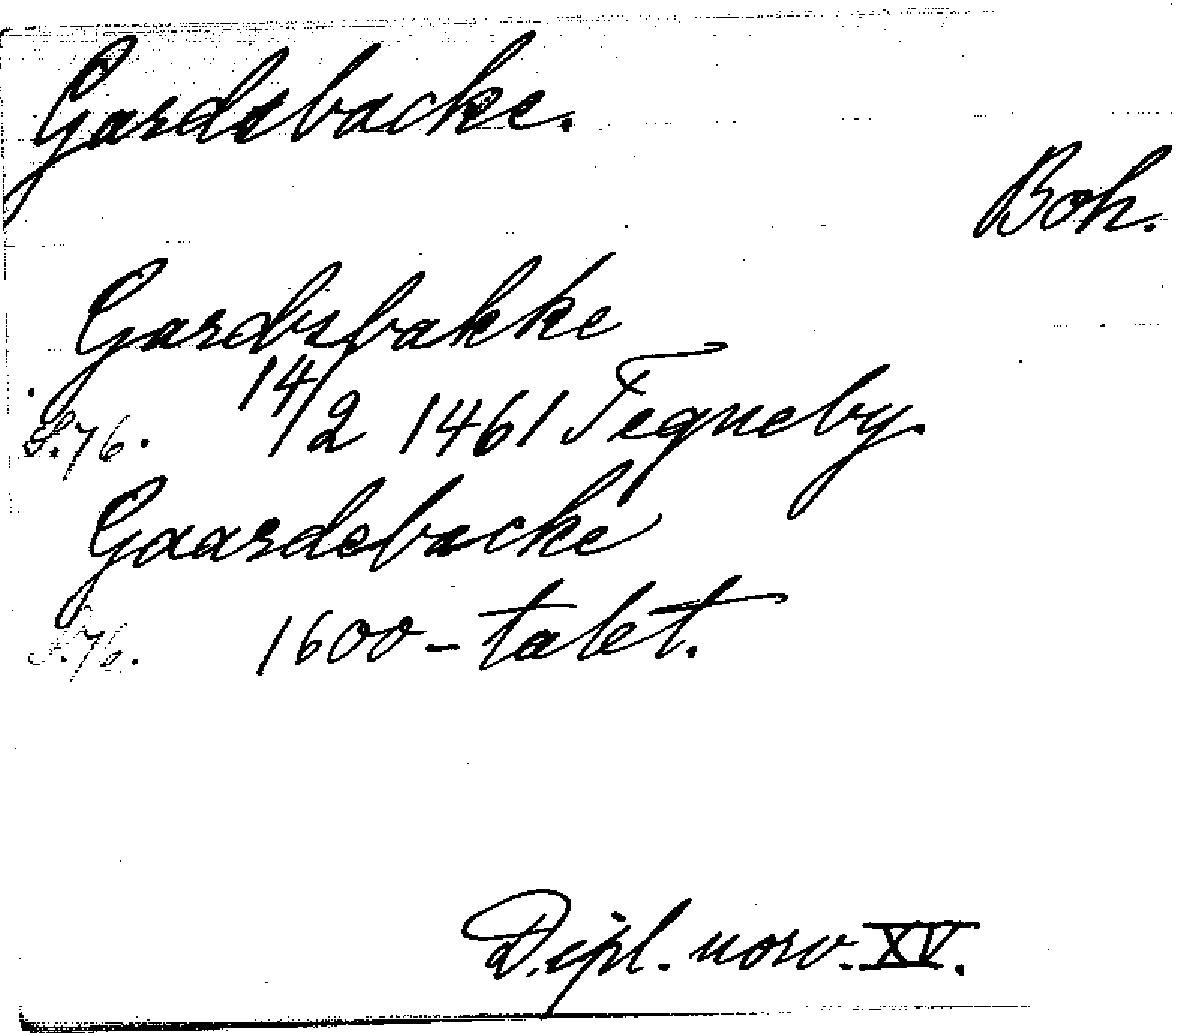 Gardsbacke.
Boh.
Gardsbakke
14/2 1461 Tegneby.
S. 76.
Gaardsbacke
S. 76. 1600-talet.
Dipl. norv. XV.